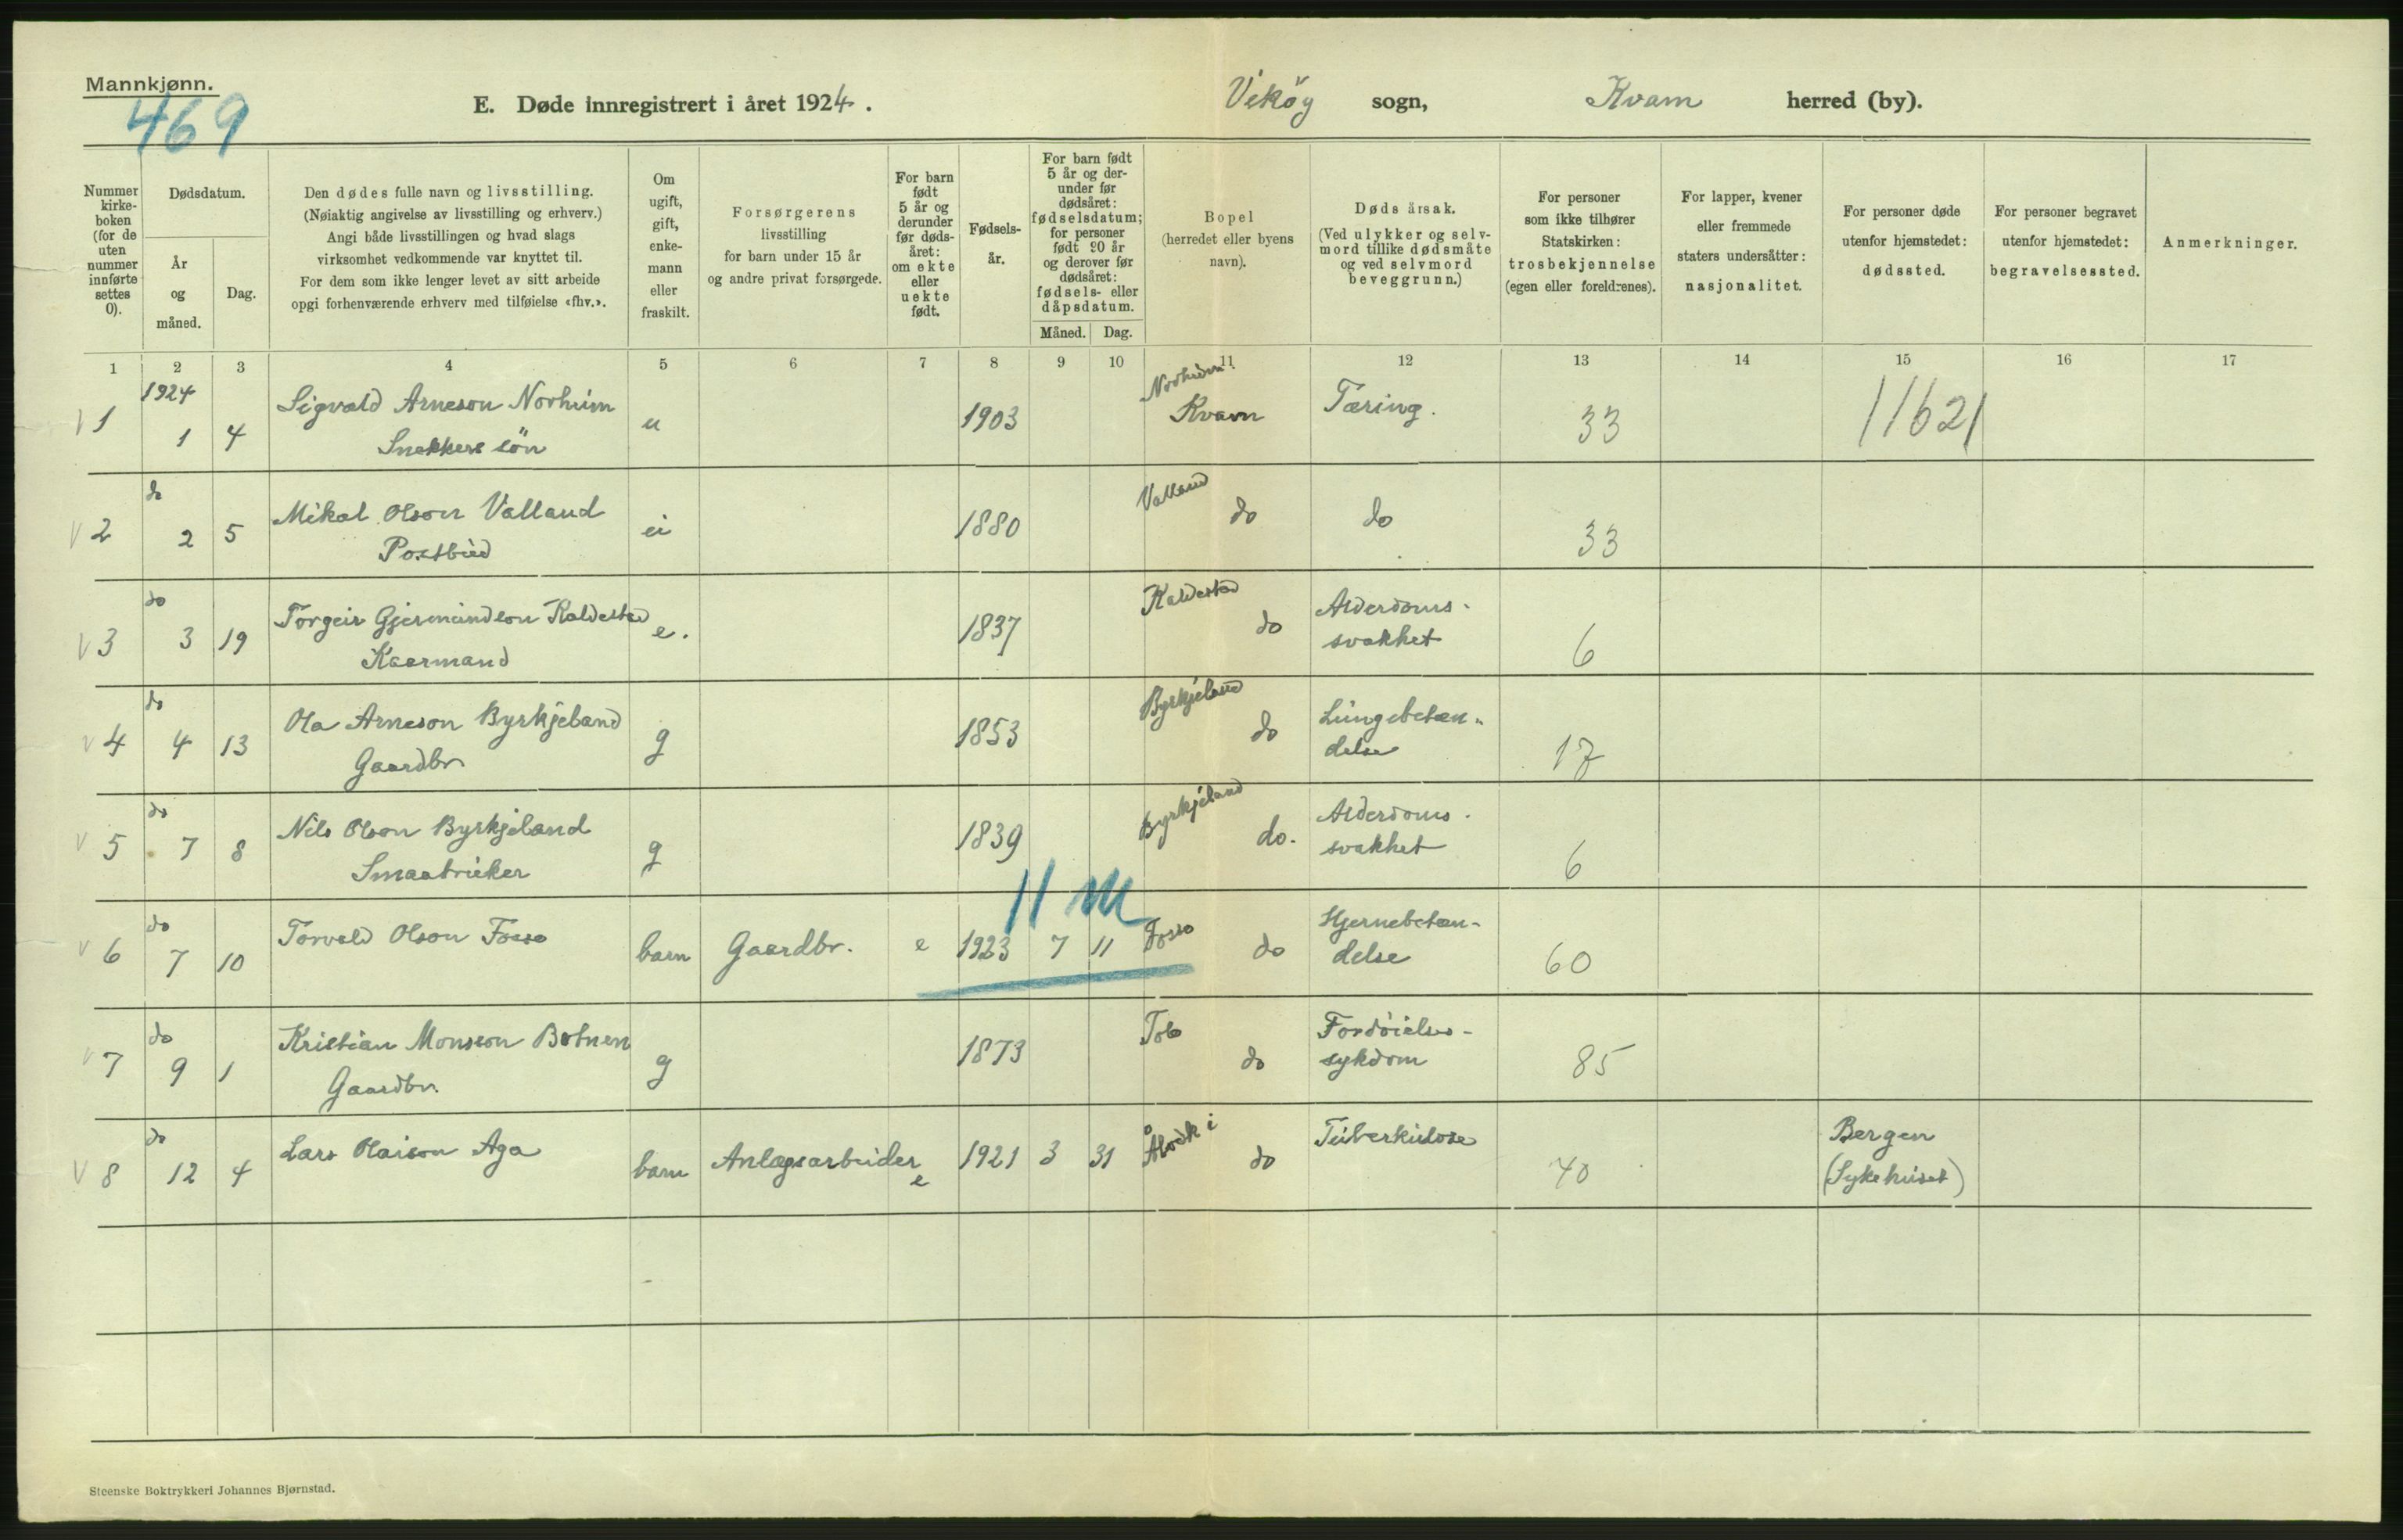 Mannkjønn.
469
E. Døde innregistrert i året 1924.
Vikøy sogn, Kvam herred (by).
Nummer kirkeboken (for de uten nummer innførte settes 0).
Dødsdatum.
År og måned.
Dag.
Den dødes fulle navn og livsstilling.
(Nøiaktig angivelse av livsstilling og erhverv.)
Angi både livsstillingen og hvad slags
virksomhet vedkommende var knyttet til.
For dem som ikke lenger levet av sitt arbeide
opgi forhenværende erhverv med tilføielse «fhv.».
Om ugift, gift, enkemann eller fraskilt.
Forsørgerens
livsstilling
for barn under 15 år
og andre privat forsørgede.
For barn født 5 år og derunder før dødsåret: om ekte eller uekte født.
Fødselsår.
For barn født 5 år og derunder før dødsåret: fødselsdatum; for personer født 90 år og derover før dødsåret: fødsels- eller dåpsdatum.
Måned. Dag.
Bopel
(herredet eller byens
navn).
Dødsårsak.
(Ved ulykker og selvmord tillike dødsmåte og ved selvmord beveggrunn.)
For personer
som ikke tilhører
Statskirken:
trosbekjennelse
(egen eller foreldrenes).
For lapper, kvener
eller fremmede
staters undersåtter:
nasjonalitet.
For personer døde
utenfor hjemstedet:
dødssted.
For personer begravet
utenfor hjemstedet:
begravelsessted.
Anmerkninger.
1 2 3 4 5 6 7 8 9 10 11 12 13 14 15 16 17
1924
V 1 1 4 Sigvald Arneson Norheim u 1903 Norheim Kvam Tæring. 33 11621
Snekkers sön
do
V 2 2 5 Mikal Olson Valland u 1880 Valland do do 33
Postbud
do
V 3 3 19 Torgeir Gjermundson Kaldestad e. 1837 Kaldestad do Alderdoms-
Kaarmand svakhet 6
do
V 4 4 13 Ola Arneson Byrkjeland g 1853 Byrkjeland do Lungebetæn-
Gaardbr delse 17
do
V 5 7 8 Nils Olson Byrkjeland g 1839 Byrkjeland do. Alderdoms-
Smaabruker svakhet 6
11 M
do
V 6 7 10 Torvald Olson Fosse barn Gaardbr. e 1923 7 11 Fosse do Hjernebetæn-
delse 60
do
V 7 9 1 Kristian Monsson Botnen g 1873 do Fordöielses-
Gaardbr. sykdom 85
do
V 8 12 4 Lars Olaison Aga barn Anlægsarbeider e 1921 3 31 Ålvik i do Tuberkulose 40 Bergen
(Sykehuset)
Steenske Boktrykkeri Johannes Bjørnstad.